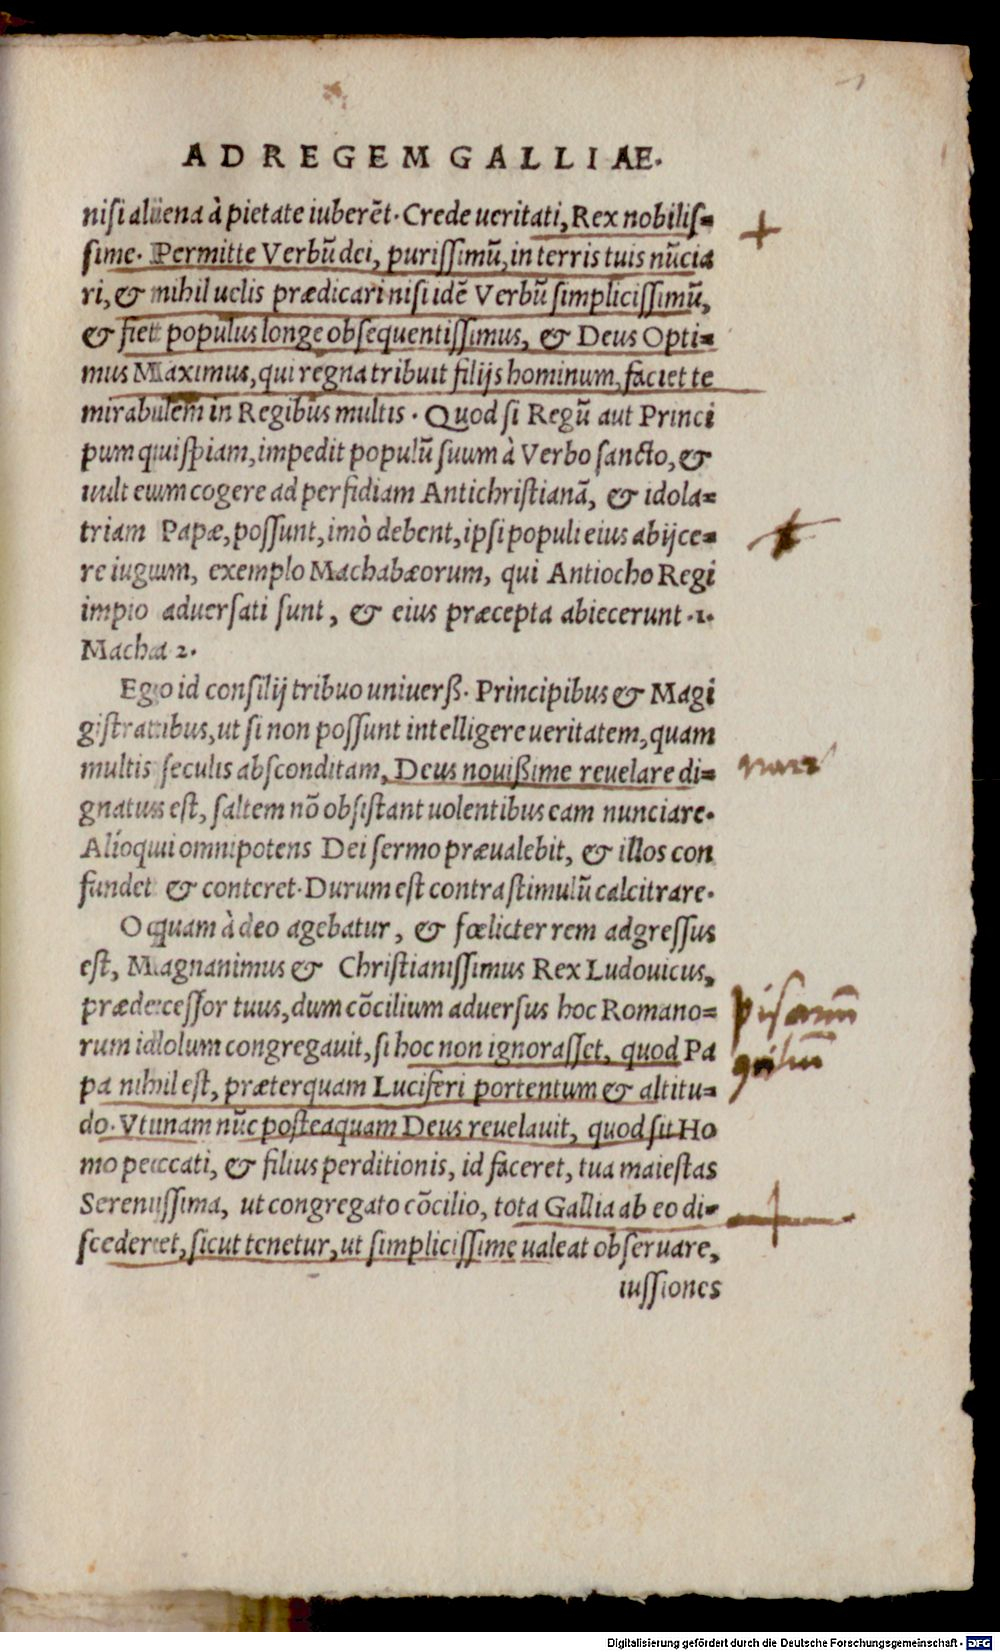 AD REGEM GALLIAE.
nisi aliena à pietate iuberẽt. Crede ueritati, Rex nobilis=
sime. Permitte Verbũ dei, purissimũ, in terris tuis nũcia
ri, & nihil uelis prædicari nisi idẽ Verbũ simplicissimũ,
& fiet populus longe obsequentissimus, & Deus Opti=
mus Maximus, qui regna tribuit filijs hominum, faciet te
mirabilem in Regibus multis. Quod si Regũ aut Princi
pum quispiam, impedit populũ suum à Verbo sancto, &
uult eum cogere ad perfidiam Antichristianã, & idola=
triam Papæ, possunt, imò debent, ipsi populi eius abijce=
re iugum, exemplo Machabæorum, qui Antiocho Regi
impio aduersati sunt, & eius præcepta abiecerunt .1.
Macha 2.
Ego id consilij tribuo uniuerß. Principibus & Magi
gistratibus, ut si non possunt intelligere ueritatem, quam
multis seculis absconditam, Deus nouißime reuelare di=
gnatus est, saltem nõ obsistant uolentibus eam nunciare.
Alioqui omnipotens Dei sermo præualebit, & illos con
fundet & conteret. Durum est contra stimulũ calcitrare.
O quam à deo agebatur, & fœlicter rem adgressus
est, Magnanimus & Christianissimus Rex Ludouicus,
prædecessor tuus, dum cõcilium aduersus hoc Romano=
rum idolum congregauit, si hoc non ignorasset, quod Pa
pa nihil est, præterquam Luciferi portentum & altitu=
do. Vtinam nũc posteaquam Deus reuelauit, quod sit Ho
mo peccati, & filius perditionis, id faceret, tua maiestas
Serenissima, ut congregato cõcilio, tota Gallia ab eo di=
scederet, sicut tenetur, ut simplicissime ualeat obseruare,
iussiones
pisanũ
Digitalisierung gefördert durch die Deutsche Forschungsgemeinschaft - DFG